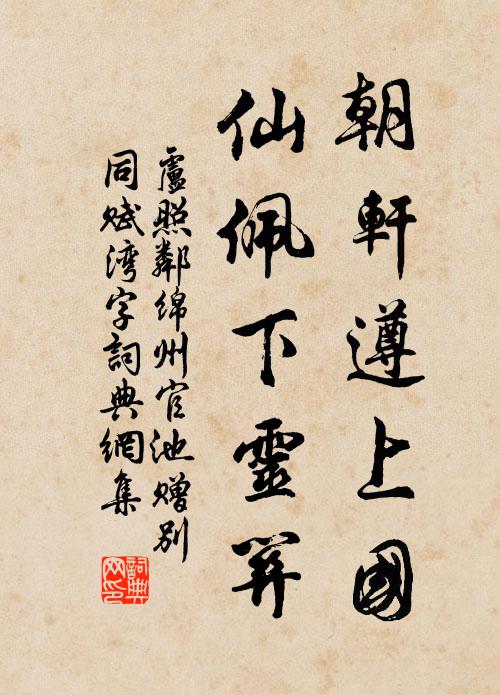 朝軒遵上國
仙佩下靈關
盧照鄰綿州官池贈別
同賦湾字詞典網集
詞典
网印